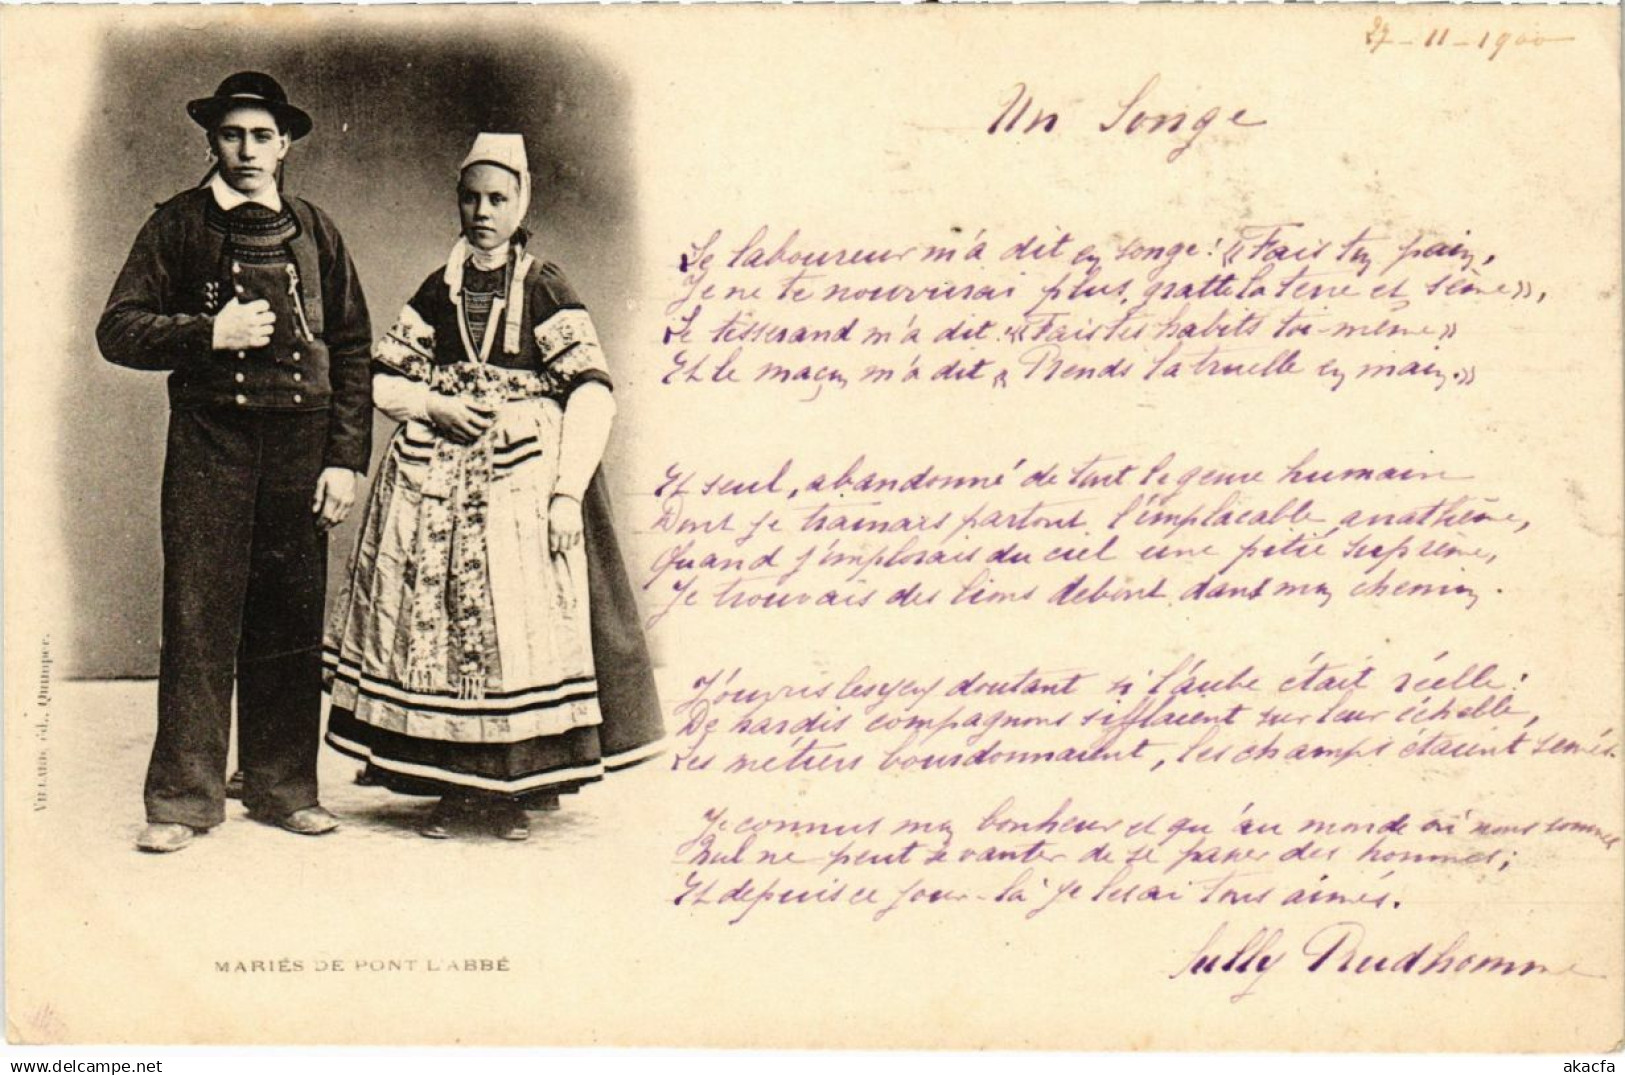 27-11-1900
Un Songe
Le laboureur m'a dit en songe : « Fais ton pain,
Je ne te nourrirai plus, gratte la terre et sème »,
Le tisserand m'a dit : « Fais tes habits toi-même »
Et le maçon m'a dit « Prends la truelle en main. »
Et seul, abandonné de tout le genre humain
Dont je trainais partout l'implacable anathème,
Quand j'implorais du ciel une pitié suprème,
Je trouvais des lions debout dans mon chemin.
J'ouvris les yeux doutant si l'aube était réelle :
De hardis compagnons sifflaient sur leur échelle,
Les métiers bourdonnaient, les champs étaient semés.
Je connus mon bonheur et qu'au monde où nous sommes
Nul ne peut se vanter de se passer des hommes ;
Et depuis ce jour-là je les ai tous aimés.
Sully Prudhomme
MARIÉS DE PONT L'ABBÉ
VILLARD, éd., Quimper.
www.delcampe.net
akacfa